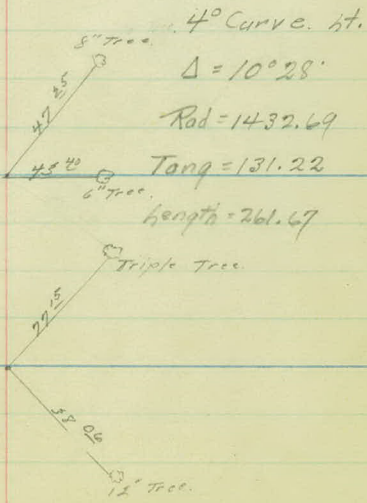 4° Curve. Lt.
8" Tree.
Δ = 10°28'
47 25
Rad = 1432.69
45 40
Tang = 131.22
6" Tree.
Length = 261.67
Triple Tree.
77 15
58 06
12" Tree.